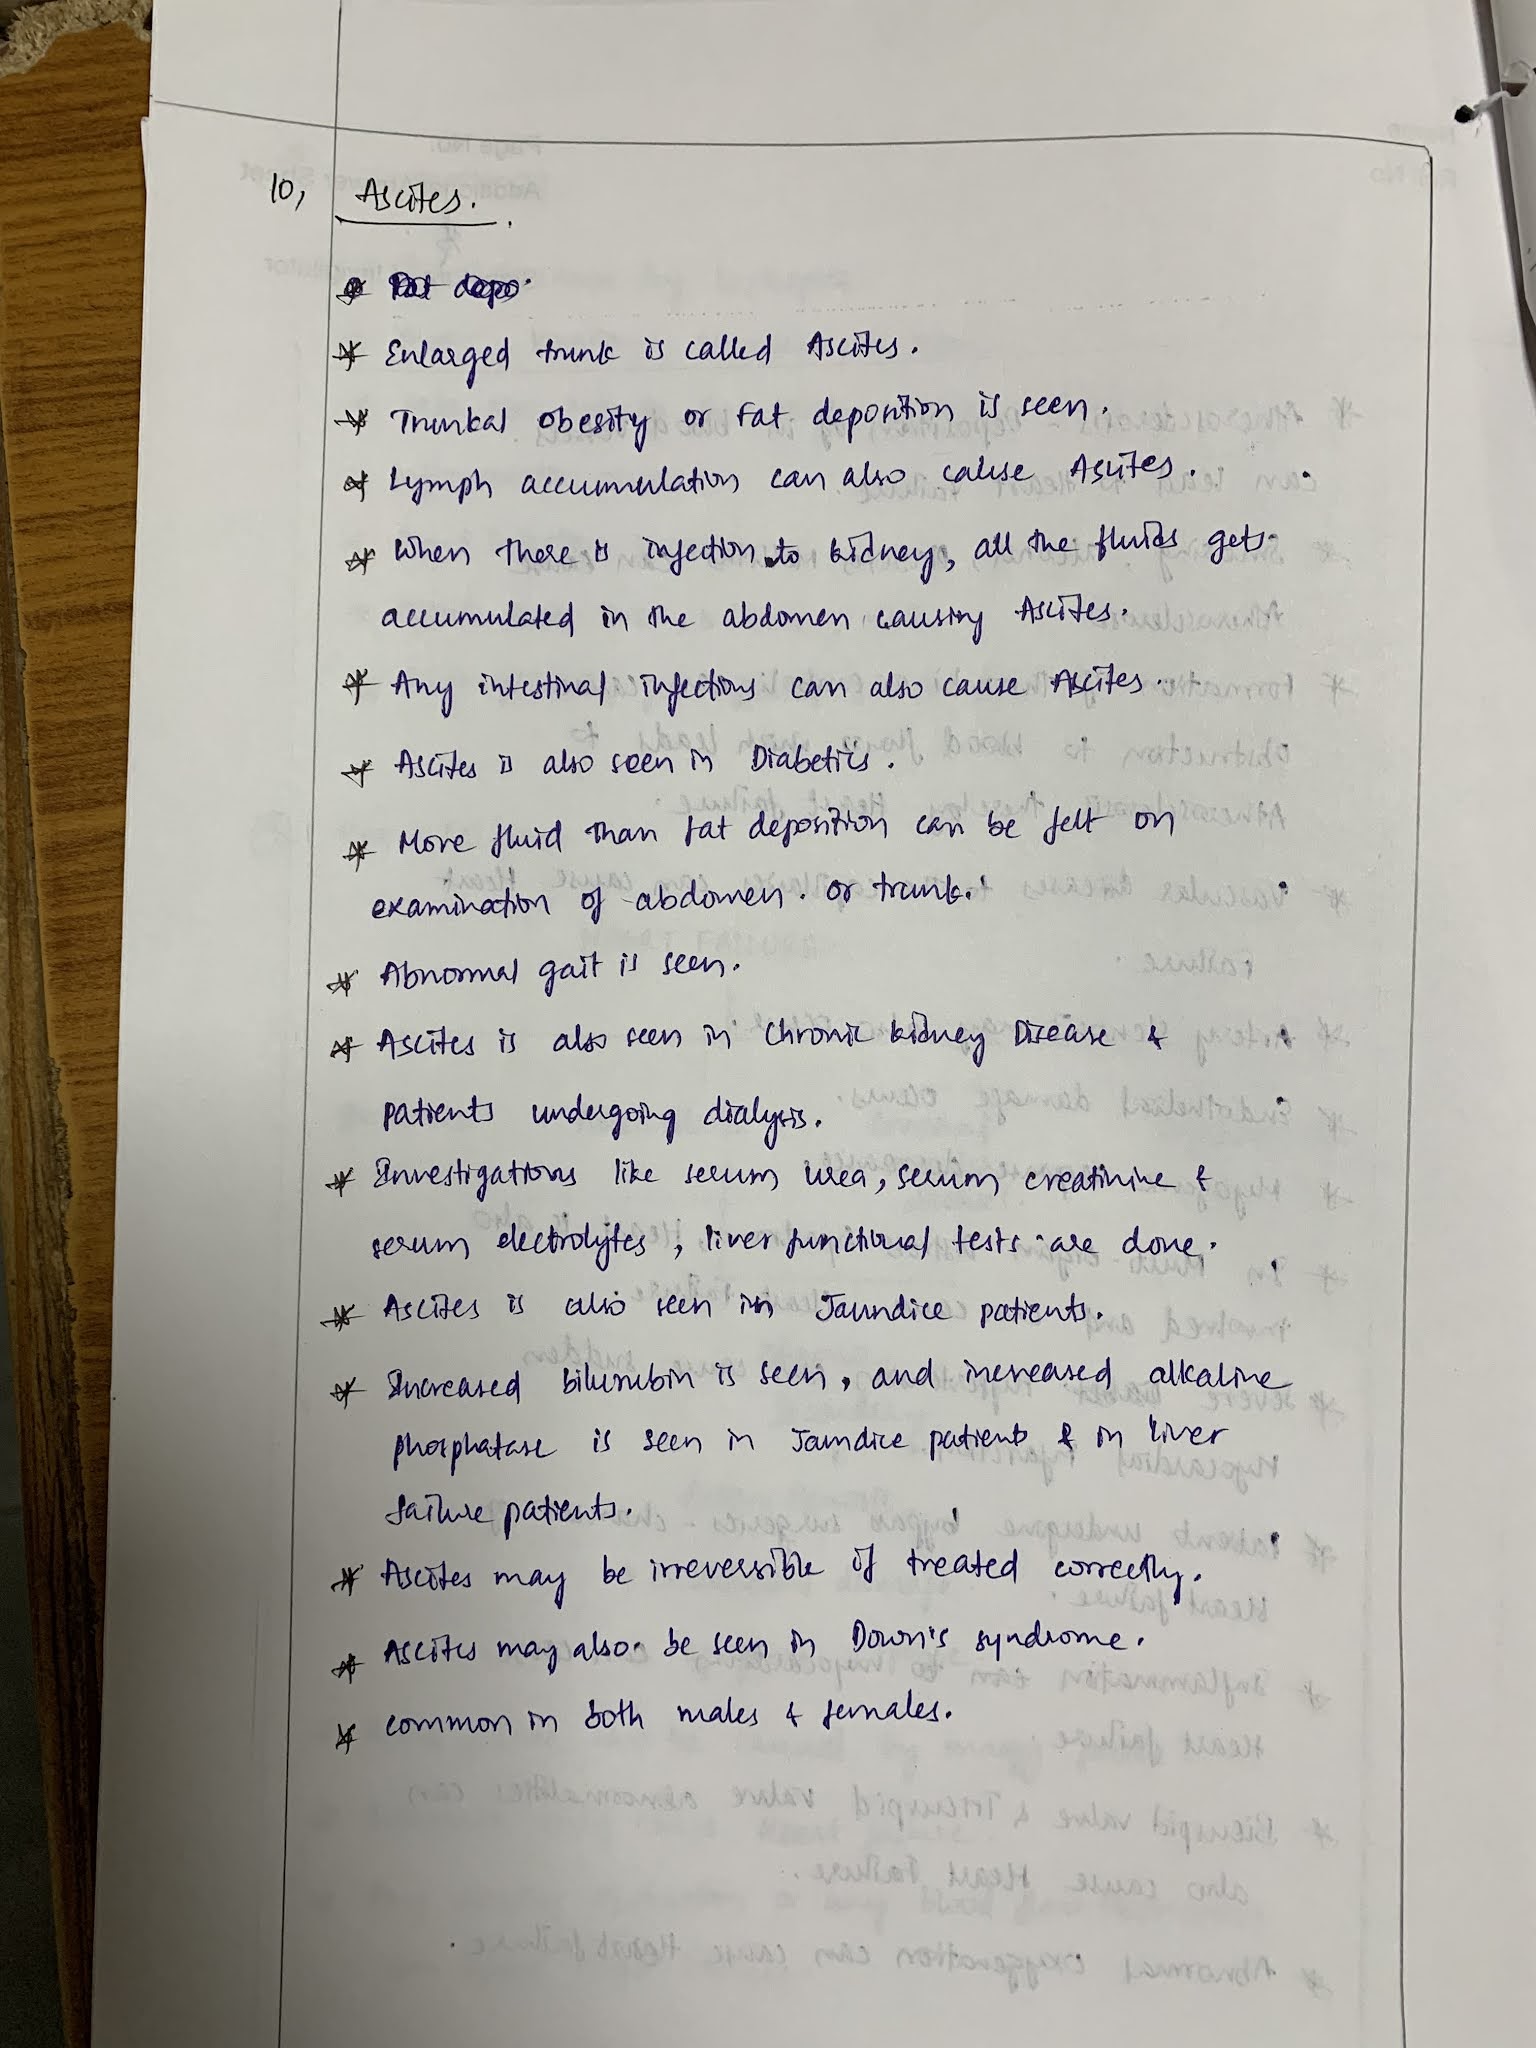 10, Ascites.
* Enlarged trunk is called Ascites.
* Trunkal obesity or Fat deposition is seen.
* Lymph accumulation can also cause Ascites.
* When there is infection to kidney, all the fluids gets
accumulated in the abdomen causing Ascites.
* Any intestinal infections can also cause Ascites.
* Ascites is also seen in Diabetics.
* More fluid than fat deposition can be felt on
examination of abdomen. or trunk.
* Abnormal gait is seen.
* Ascites is also seen in Chronic kidney Disease &
patients undergoing dialysis.
* Investigations like serum urea, serum creatinine &
serum electrolytes, liver functional tests are done.
* Ascites is also seen in Jaundice patients.
* Increased bilirubin is seen, and increased alkaline
phosphatase is seen in Jaundice patients & in liver
failure patients.
* Ascites may be irreversible if treated correctly.
* Ascites may also be seen in Down's syndrome.
* common in both males & females.